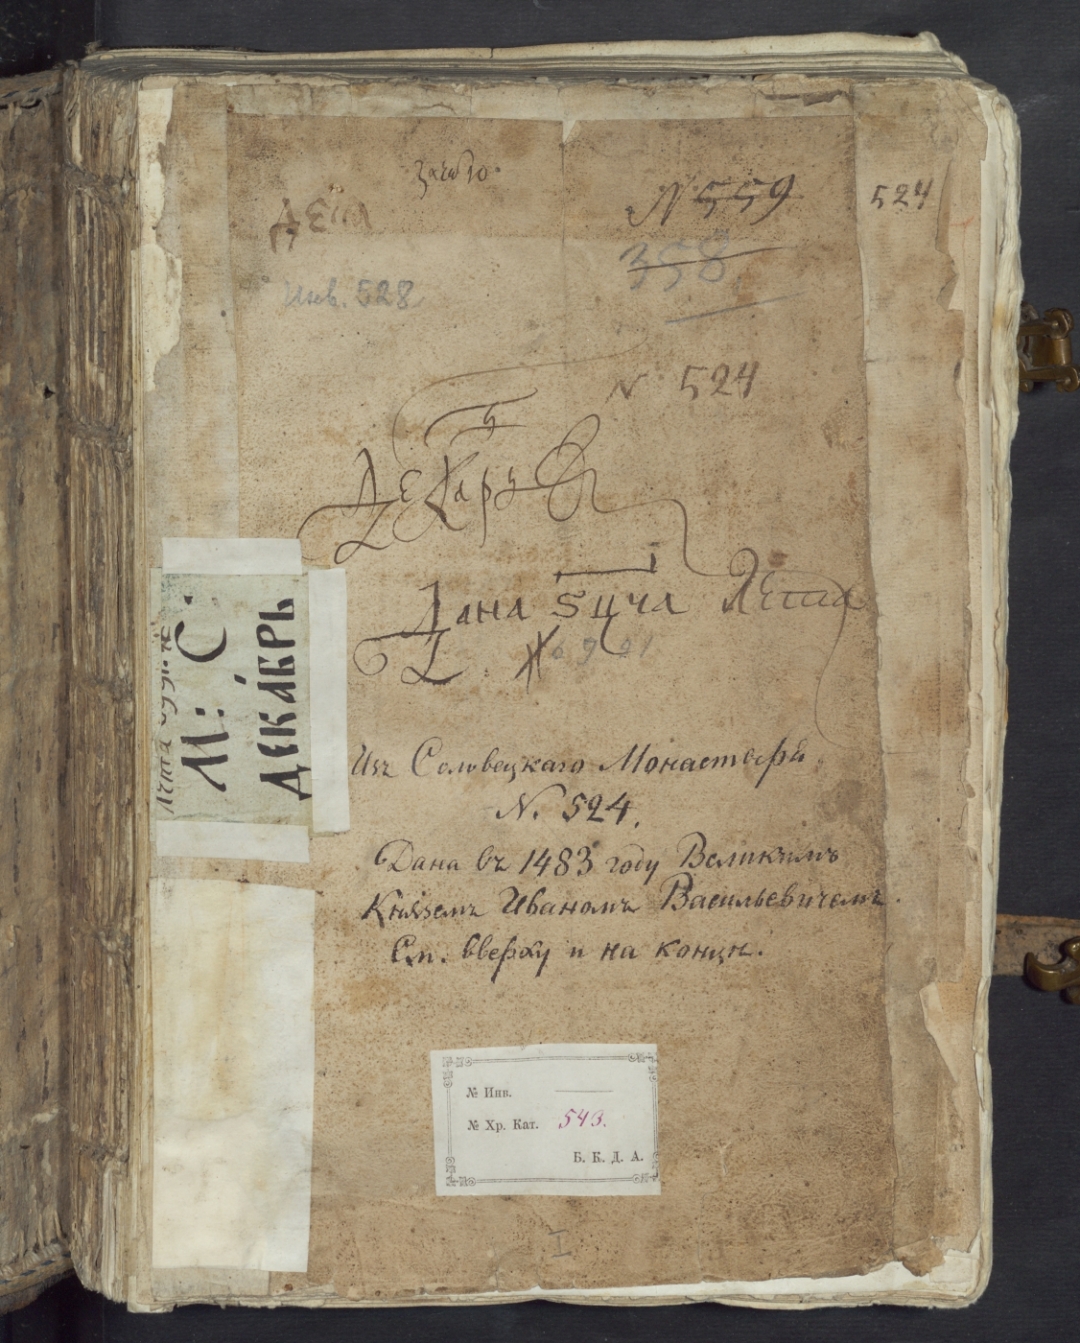 N 559
524
358
Инв. 528
N 524
Декабрь
Дана ѕцча лета
6991
М: С:
ДЕКА́БРЬ
Изъ Соловецкаго Монастыря
N. 524.
Дана въ 1483 году Великимъ
Княземъ Иваномъ Васильевичемъ.
См. вверху и на концѣ.
№ Инв.
№ Хр. Кат. 543.
Б. К. Д. А.
I